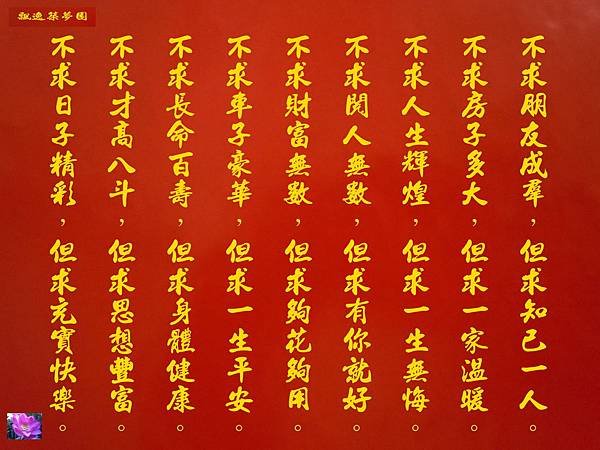 飄逸築夢園
不求朋友成羣，但求知己一人。
不求房子多大，但求一家溫暖。
不求人生輝煌，但求一生無悔。
不求閱人無數，但求有你就好。
不求財富無數，但求夠花夠用。
不求車子豪華，但求一生平安。
不求長命百壽，但求身體健康。
不求才高八斗，但求思想豐富。
不求日子精彩，但求充實快樂。